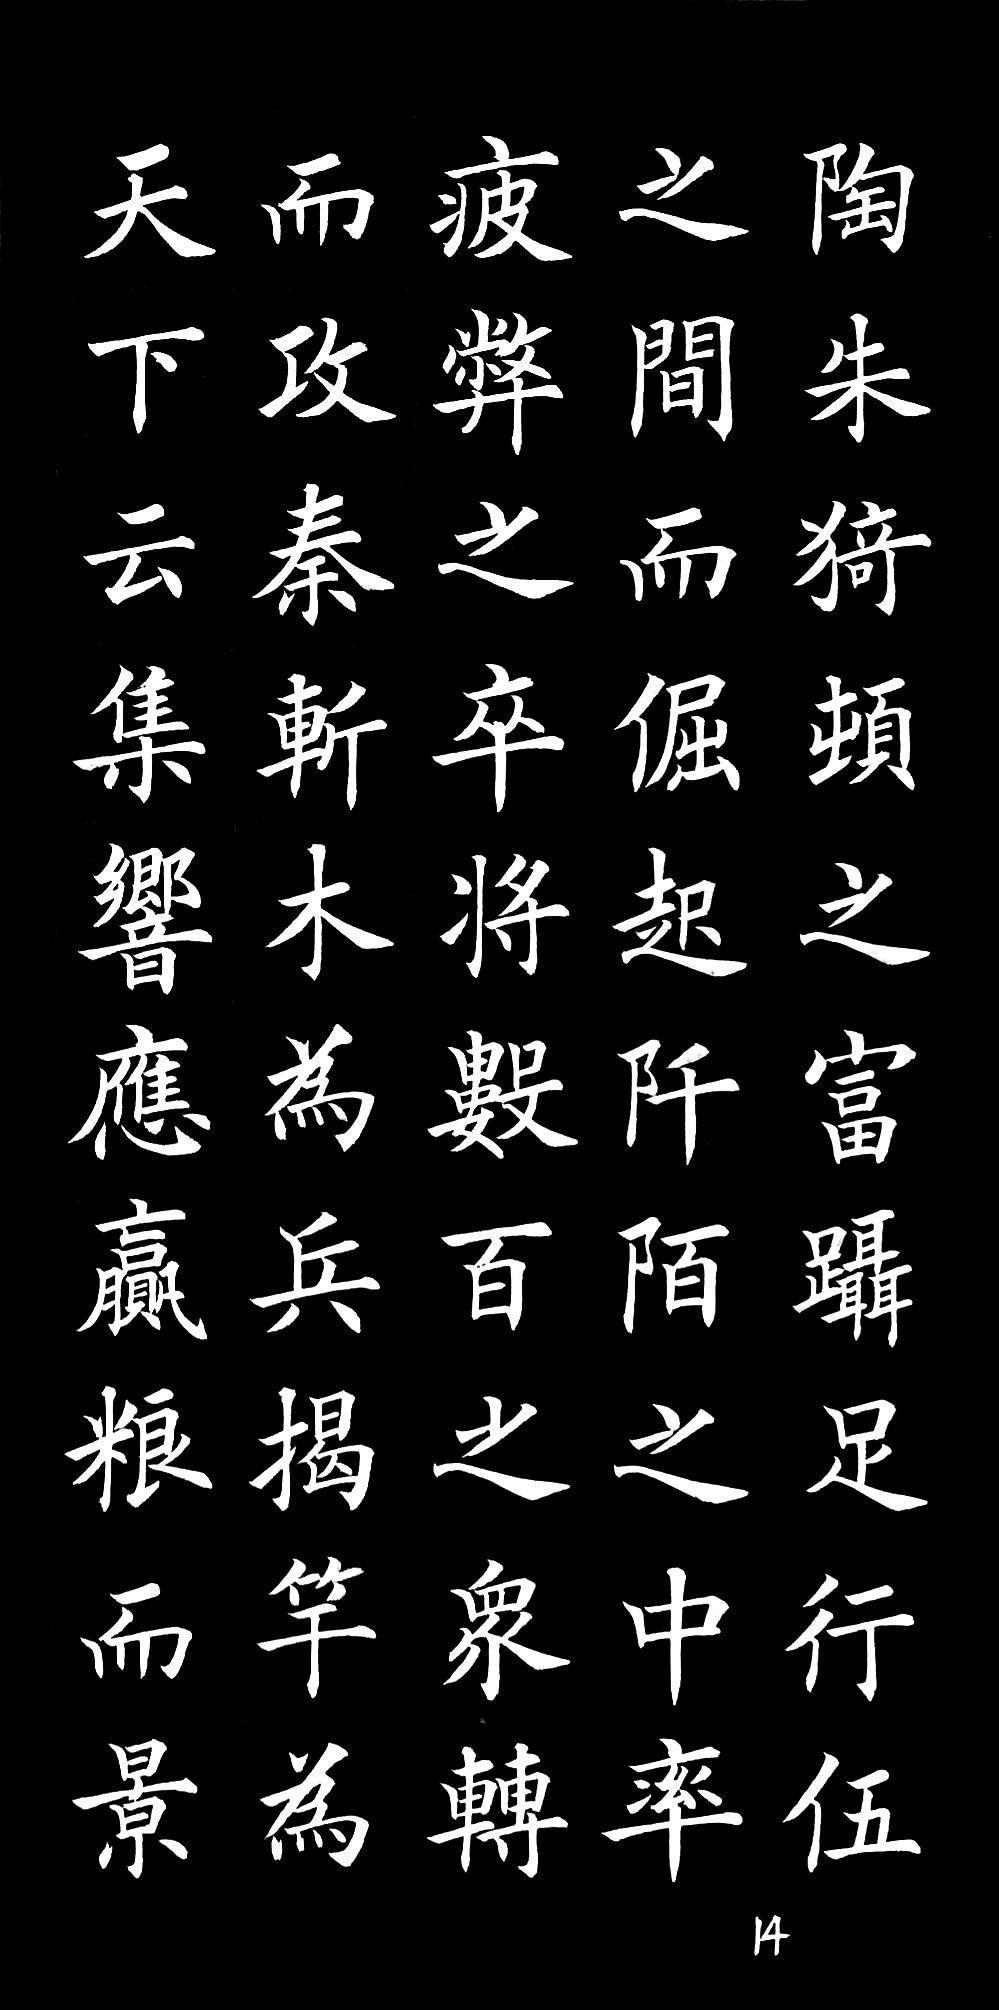 陶朱猗頓之富躡足行伍
之間而倔起阡陌之中率
疲弊之卒將數百之眾轉
而攻秦斬木為兵揭竿為
天下云集響應贏粮而景
14